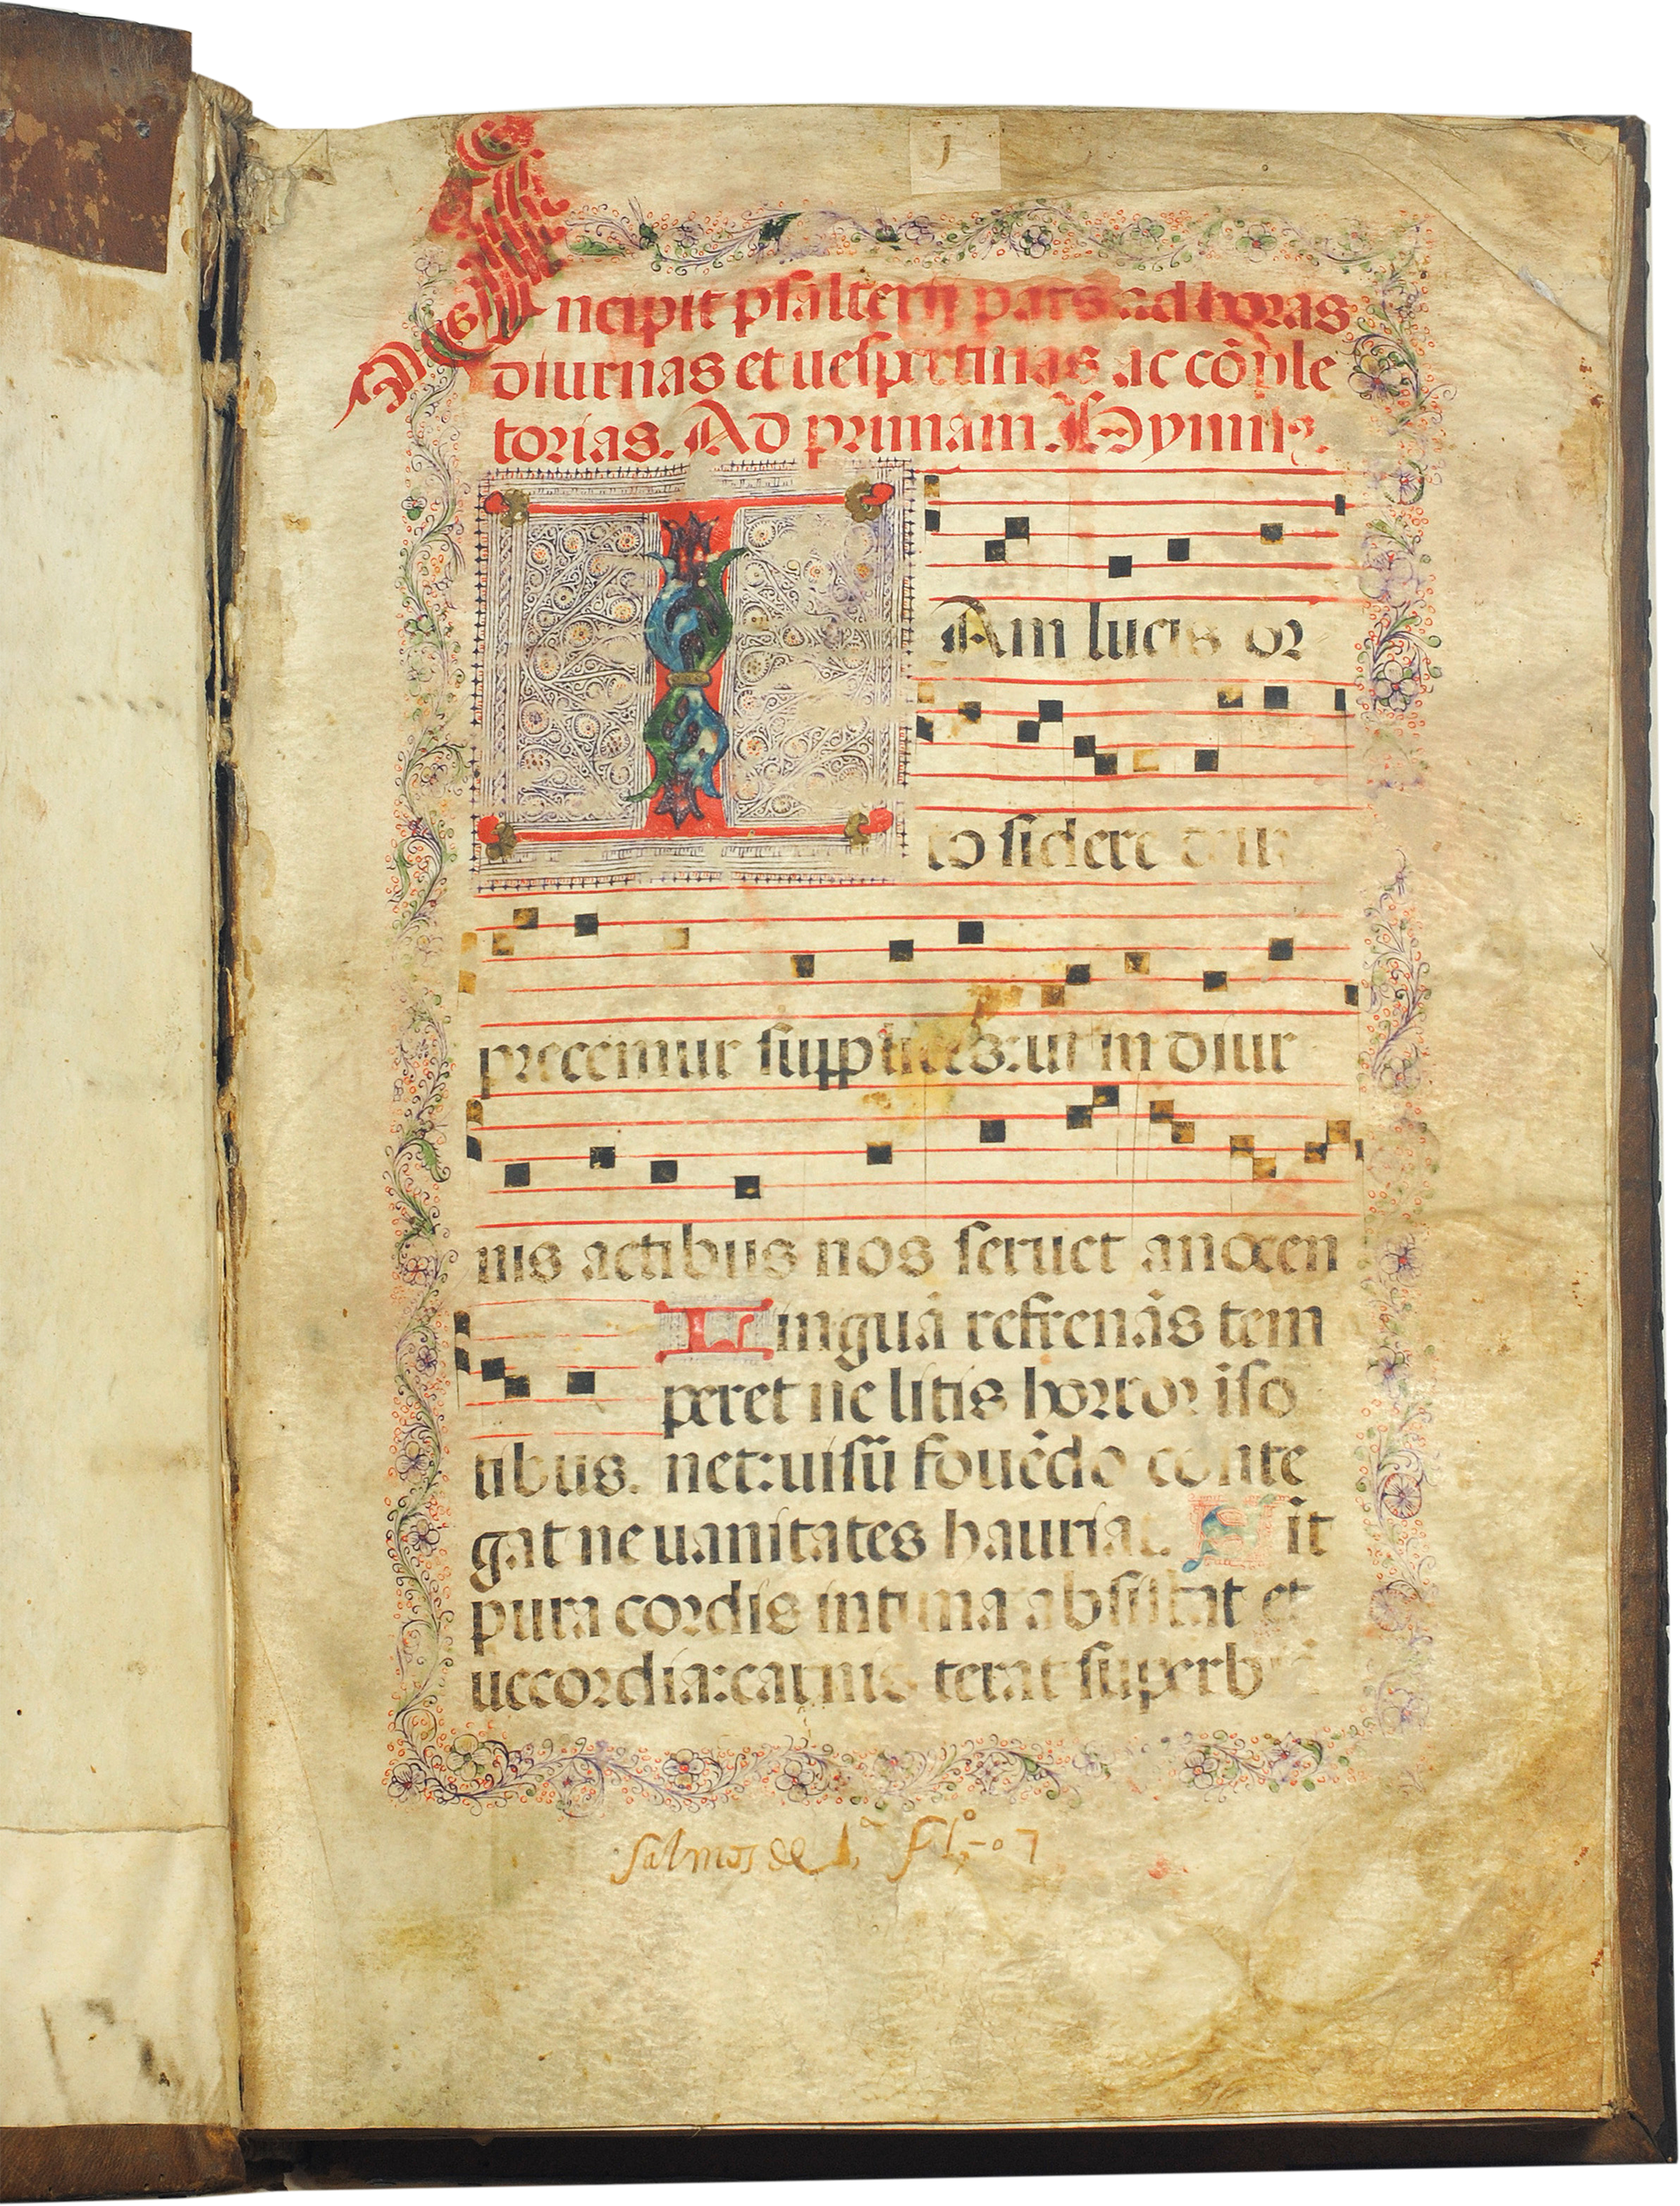 J
Incipit psalterij pars ad horas
diurnas et uespertinas ac cōple
torias. Ad primam. Hymnꝰ.
IAm lucis or
to sidere deū
precemur supplices: ut in diur
nis actibus nos seruet a nocen
Linguā refrenās tem
peret ne litis horror iso
tibus. net: uisū fouēdo conte
gat ne uanitates hauriat. Sit
pura cordis intima absistat et
uecordia: carnis terat superb
salmos de 1ª fº 07